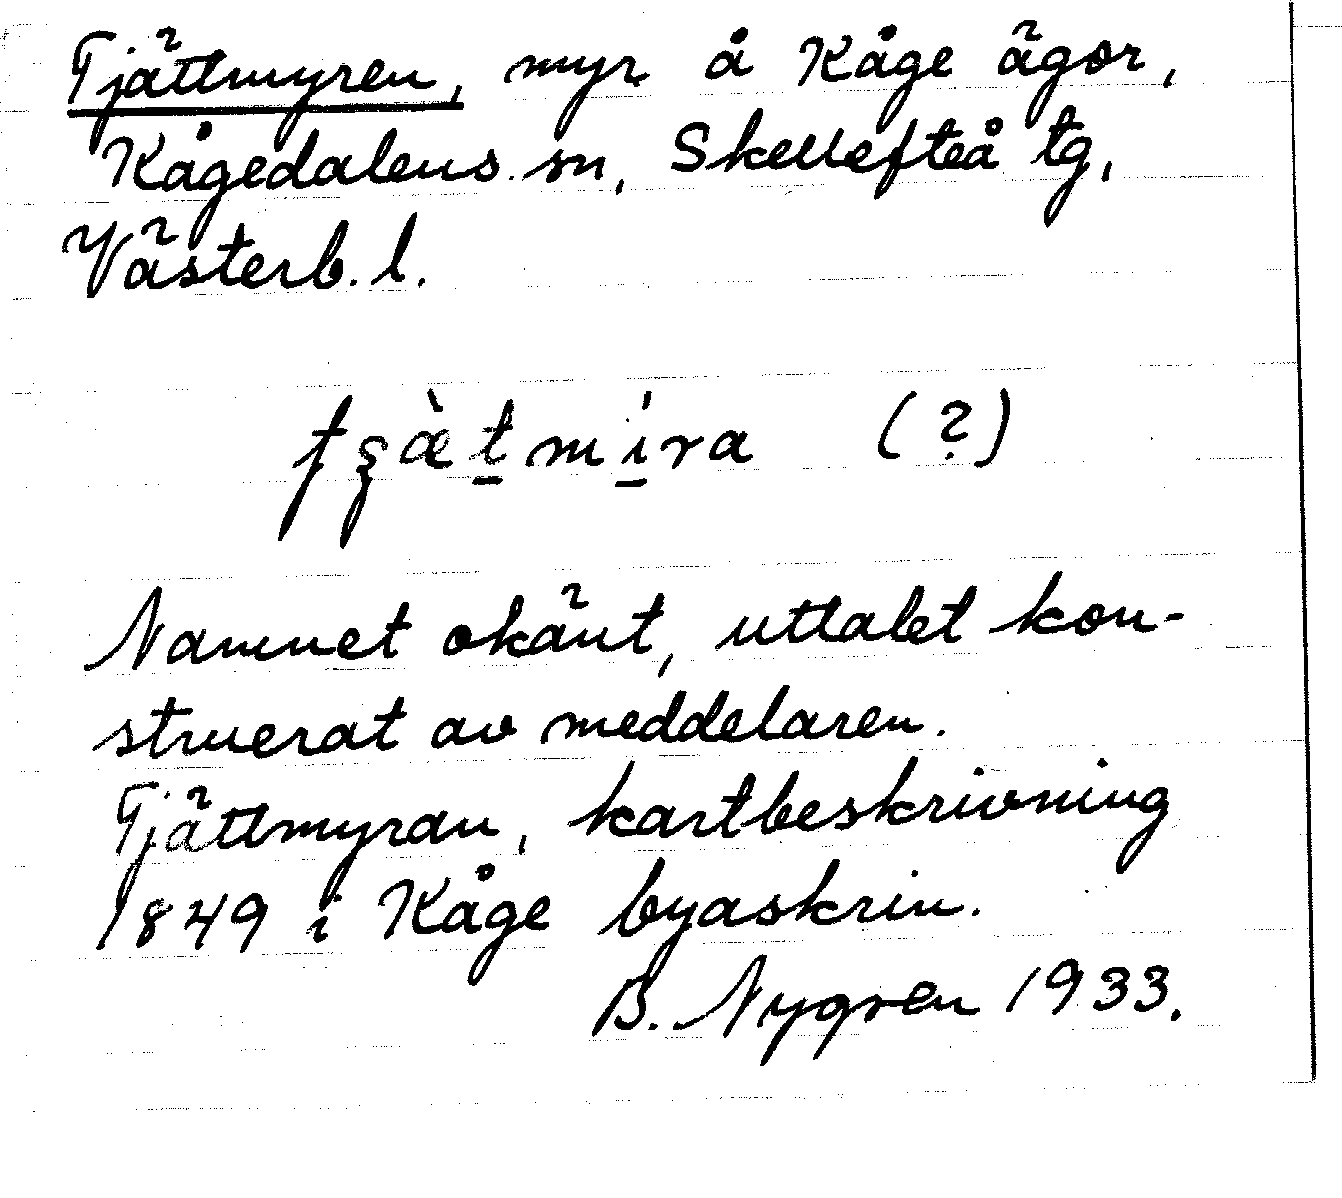 Tjättmyren, myr å Kåge ägor,
Kågedalens sn, Skellefteå tg,
Västerb. l.
(?)
Namnet okänt, uttalet kon-
struerat av meddelaren.
Tjättmyran, kartbeskrivning
1849 i Kåge byaskrin.
B. Nygren 1933.